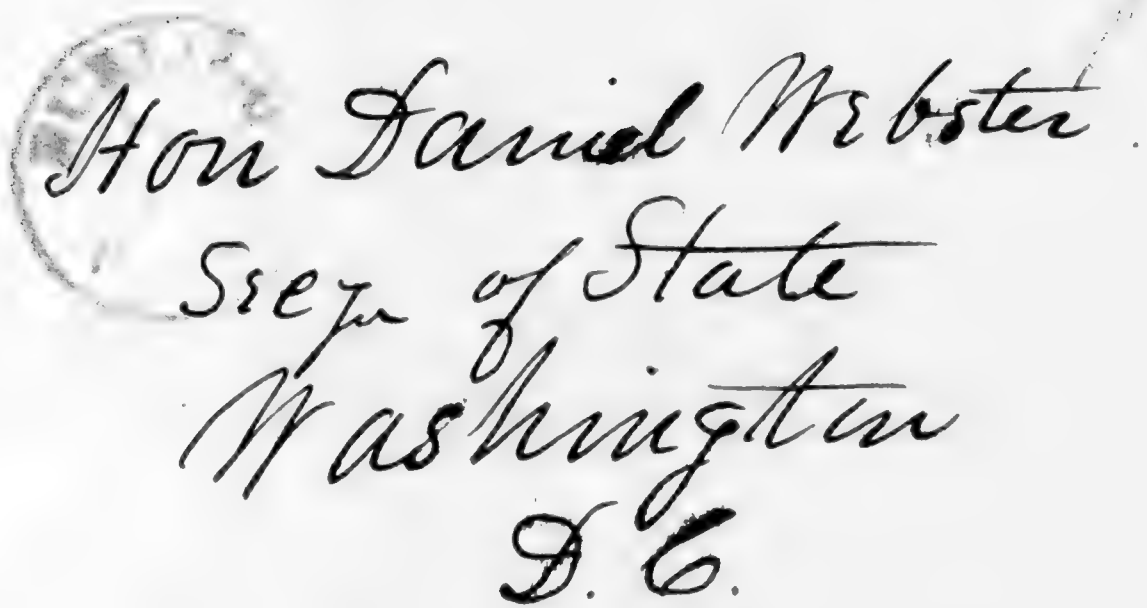 Hon Daniel Webster
Secy of State
Washington
D.C.